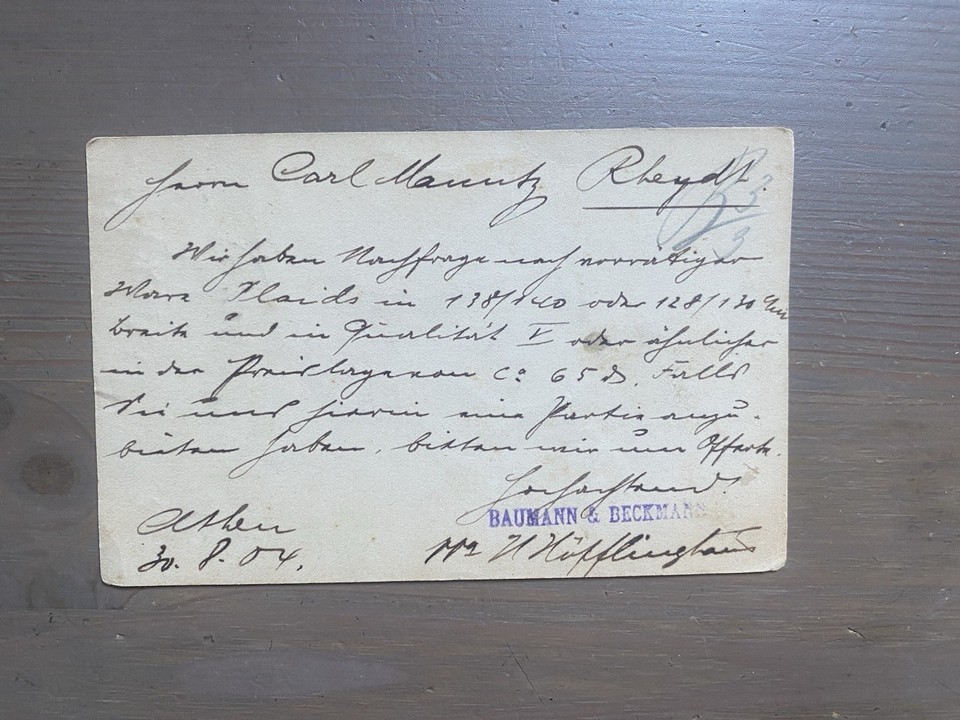 Herrn Carl Mannitz Rheydt.
Wir haben Nachfrage nach vorrätiger
Ware Plaids in 138/140 oder 128/130 cm
breite und in Qualität V oder ähnlicher
in der Preislage von ca 65 d. Falls
Sie uns hierin eine Partie anzu-
bieten haben, bitten wir um Offerte.
Hochachtend!
BAUMANN & BECKMANN
Athen
30. 8. 04.
ppa H Höfflinghaus